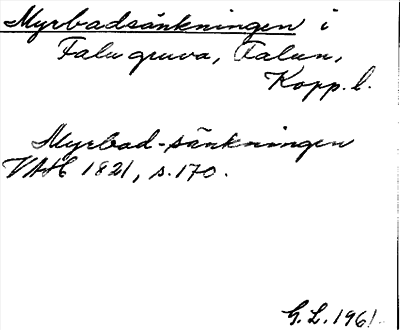 Myrbadsänkningen i
Falu gruva, Falun,
Kopp. l.
Myrbad-sänkningen
VAH 1821, s. 170.
G.L. 1961.